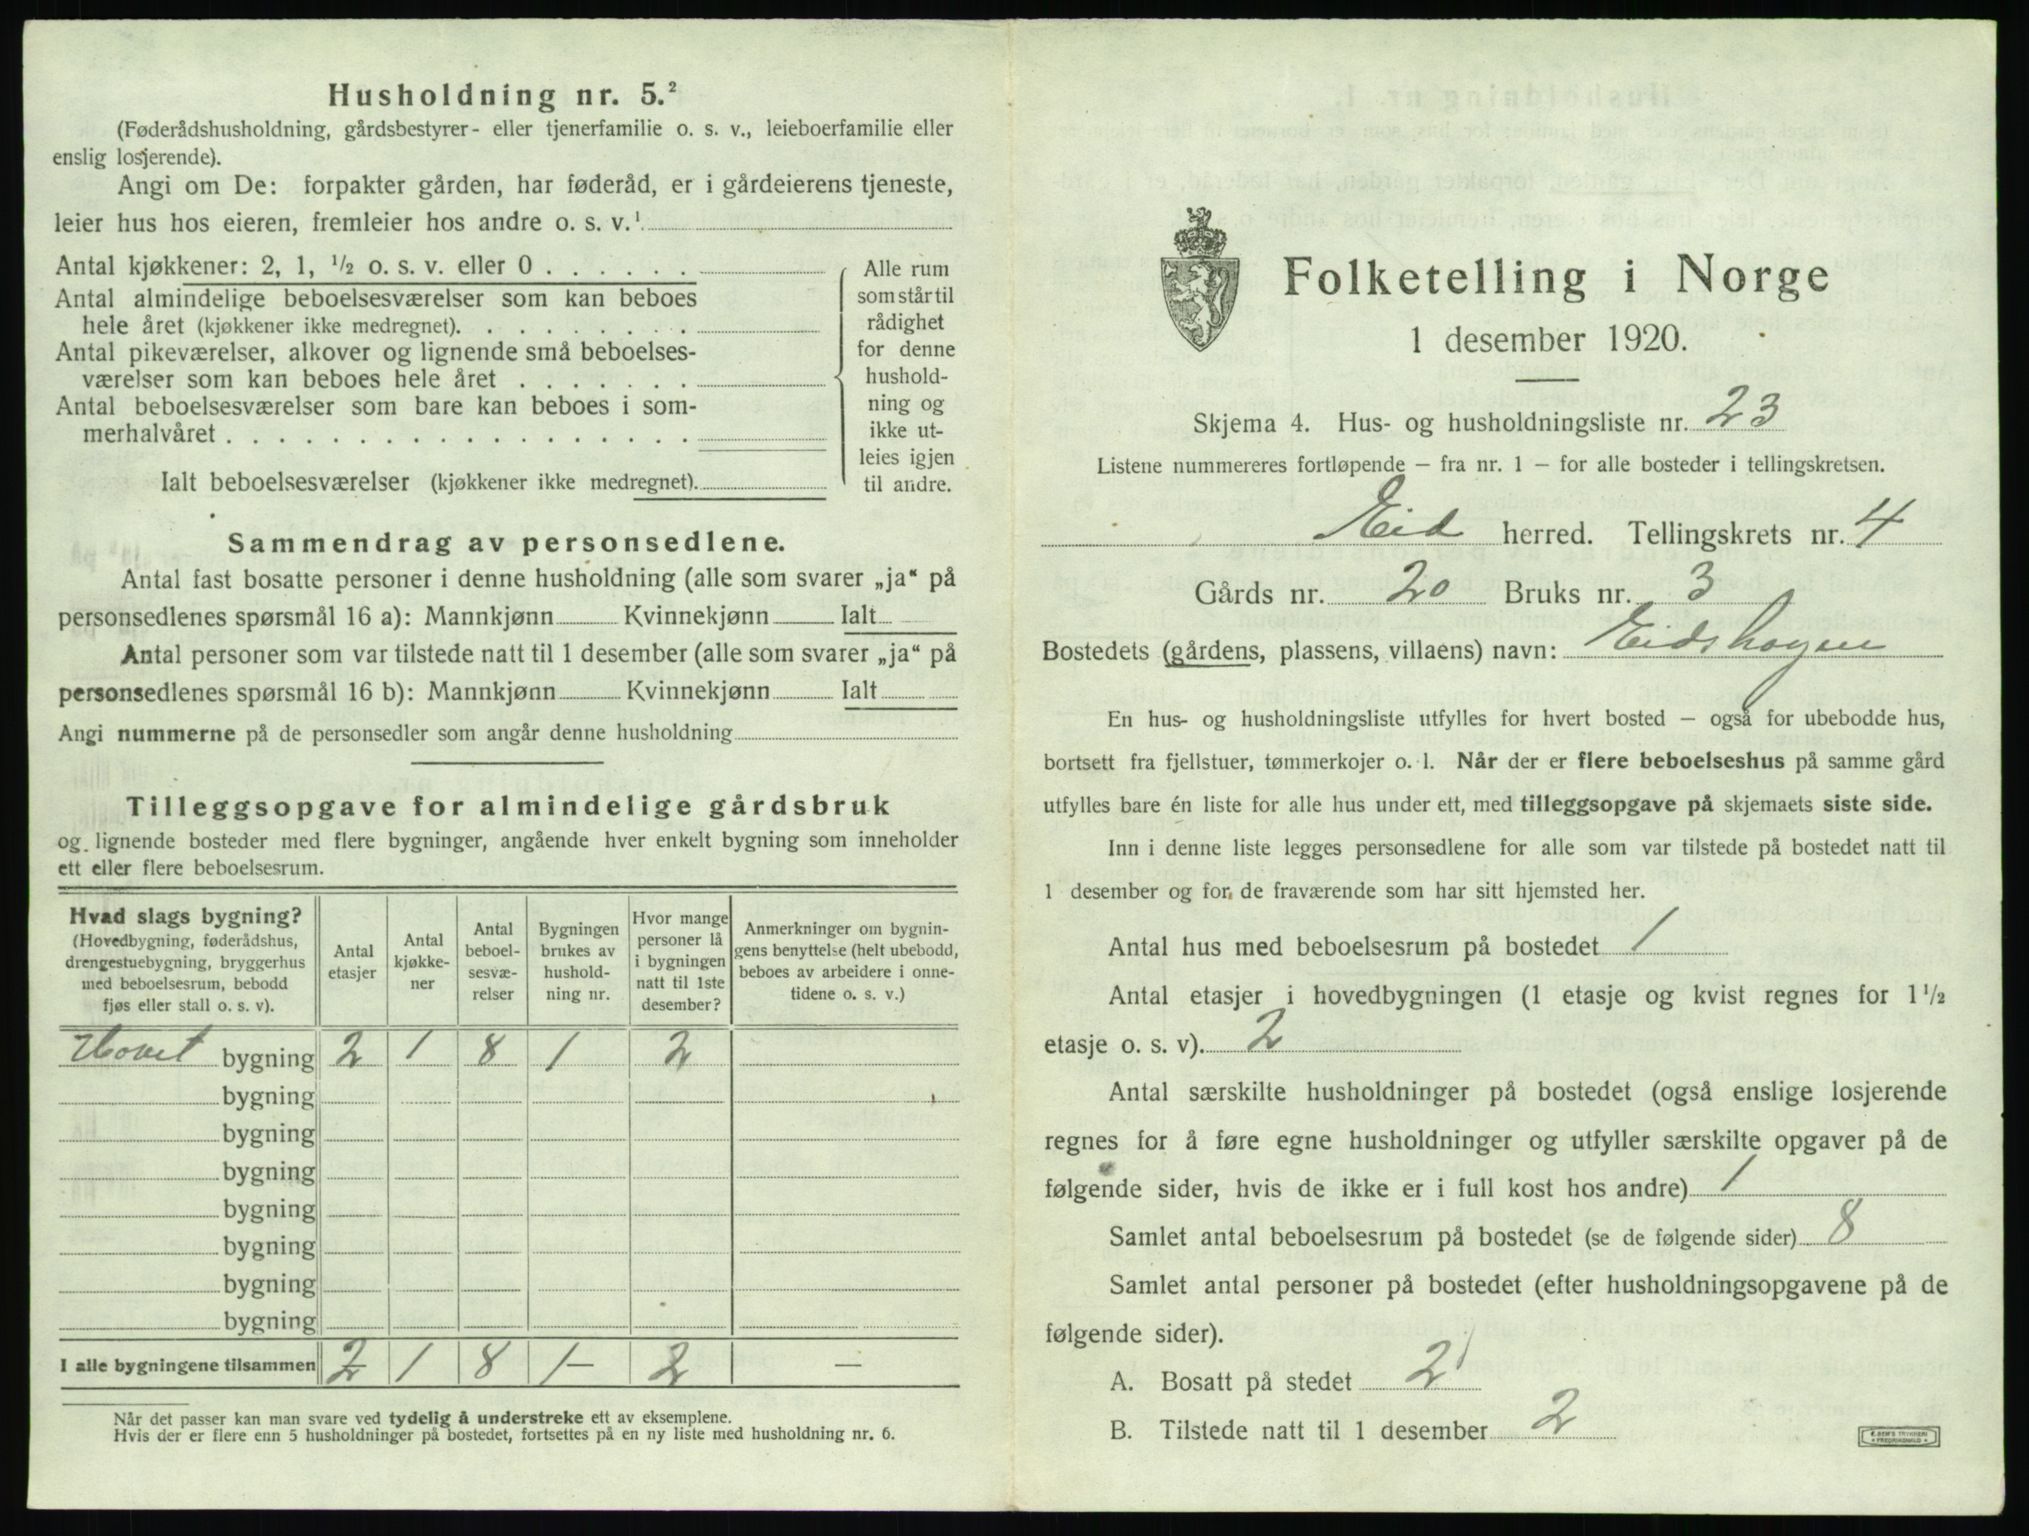 Husholdning nr. 5.²
(Føderådshusholdning, gårdsbestyrer- eller tjenerfamilie o. s. v., leieboerfamilie eller
enslig losjerende).
Angi om De: forpakter gården, har føderåd, er i gårdeierens tjeneste,
leier hus hos eieren, fremleier hos andre o. s. v.¹
Antal kjøkkener: 2, 1, ½ o. s. v. eller 0 . . . . . .
Antal almindelige beboelsesværelser som kan beboes
hele året (kjøkkener ikke medregnet). . . . . . . . .
Antal pikeværelser, alkover og lignende små beboelses-
værelser som kan beboes hele året . . . . . . .
Antal beboelsesværelser som bare kan beboes i som-
merhalvåret . . . . . . . . . . . . . . . . . .
Ialt beboelsesværelser (kjøkkener ikke medregnet).
Alle rum
som står til
rådighet
for denne
hushold-
ning og
ikke ut-
leies igjen
til andre.
Sammendrag av personsedlene.
Antal fast bosatte personer i denne husholdning (alle som svarer „ja“ på
personsedlenes spørsmål 16 a): Mannkjønn Kvinnekjønn Ialt
Antal personer som var tilstede natt til 1 desember (alle som svarer „ja“ på
personsedlenes spørsmål 16 b): Mannkjønn Kvinnekjønn Ialt
Angi nummerne på de personsedler som angår denne husholdning
Tilleggsopgave for almindelige gårdsbruk
og lignende bosteder med flere bygninger, angående hver enkelt bygning som inneholder
ett eller flere beboelsesrum.
Hvad slags bygning?
(Hovedbygning, føderådshus,
drengestuebygning, bryggerhus
med beboelsesrum, bebodd
fjøs eller stall o. s. v).
Antal
etasjer
Antal
kjøkke-
ner
Antal
beboel-
sesvæ-
relser
Bygningen
brukes av
hushold-
ning nr.
Hvor mange
personer lå
i bygningen
natt til 1ste
desember?
Anmerkninger om bygnin-
gens benyttelse (helt ubebodd,
beboes av arbeidere i onne-
tidene o. s. v.)
Hovet bygning 2 1 8 1 2
bygning
bygning
bygning
bygning
bygning
bygning
bygning
I alle bygningene tilsammen 2 1 8 1 – 2 —
Når det passer kan man svare ved tydelig å understreke ett av eksemplene.
Hvis der er flere enn 5 husholdninger på bostedet, fortsettes på en ny liste med husholdning nr. 6.
Folketelling i Norge
1 desember 1920.
Skjema 4. Hus- og husholdningsliste nr. 23
Listene nummereres fortløpende – fra nr. 1 – for alle bosteder i tellingskretsen.
Eid herred. Tellingskrets nr. 4
Gårds nr. 20 Bruks nr. 3
Bostedets (gårdens, plassens, villaens) navn: Eidshagen
En hus- og husholdningsliste utfylles for hvert bosted – også for ubebodde hus,
bortsett fra fjellstuer, tømmerkojer o. l. Når der er flere beboelseshus på samme gård
utfylles bare én liste for alle hus under ett, med tilleggsopgave på skjemaets siste side.
Inn i denne liste legges personsedlene for alle som var tilstede på bostedet natt til
1 desember og for de fraværende som har sitt hjemsted her.
Antal hus med beboelsesrum på bostedet 1
Antal etasjer i hovedbygningen (1 etasje og kvist regnes for 1½
etasje o. s. v). 2
Antal særskilte husholdninger på bostedet (også enslige losjerende
regnes for å føre egne husholdninger og utfyller særskilte opgaver på de
følgende sider, hvis de ikke er i full kost hos andre) 1
Samlet antal beboelsesrum på bostedet (se de følgende sider) 8
Samlet antal personer på bostedet (efter husholdningsopgavene på de
følgende sider).
A. Bosatt på stedet 2
B. Tilstede natt til 1 desember 2